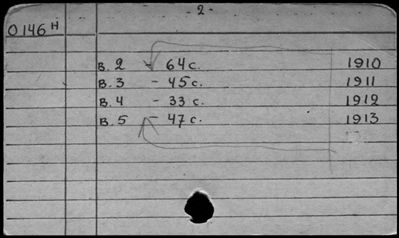 - 2 -
0146 H
B. 2 - 64 c. 1910
B. 3 - 45 c. 1911
B. 4 - 33 c. 1912
B. 5 - 47 c. 1913